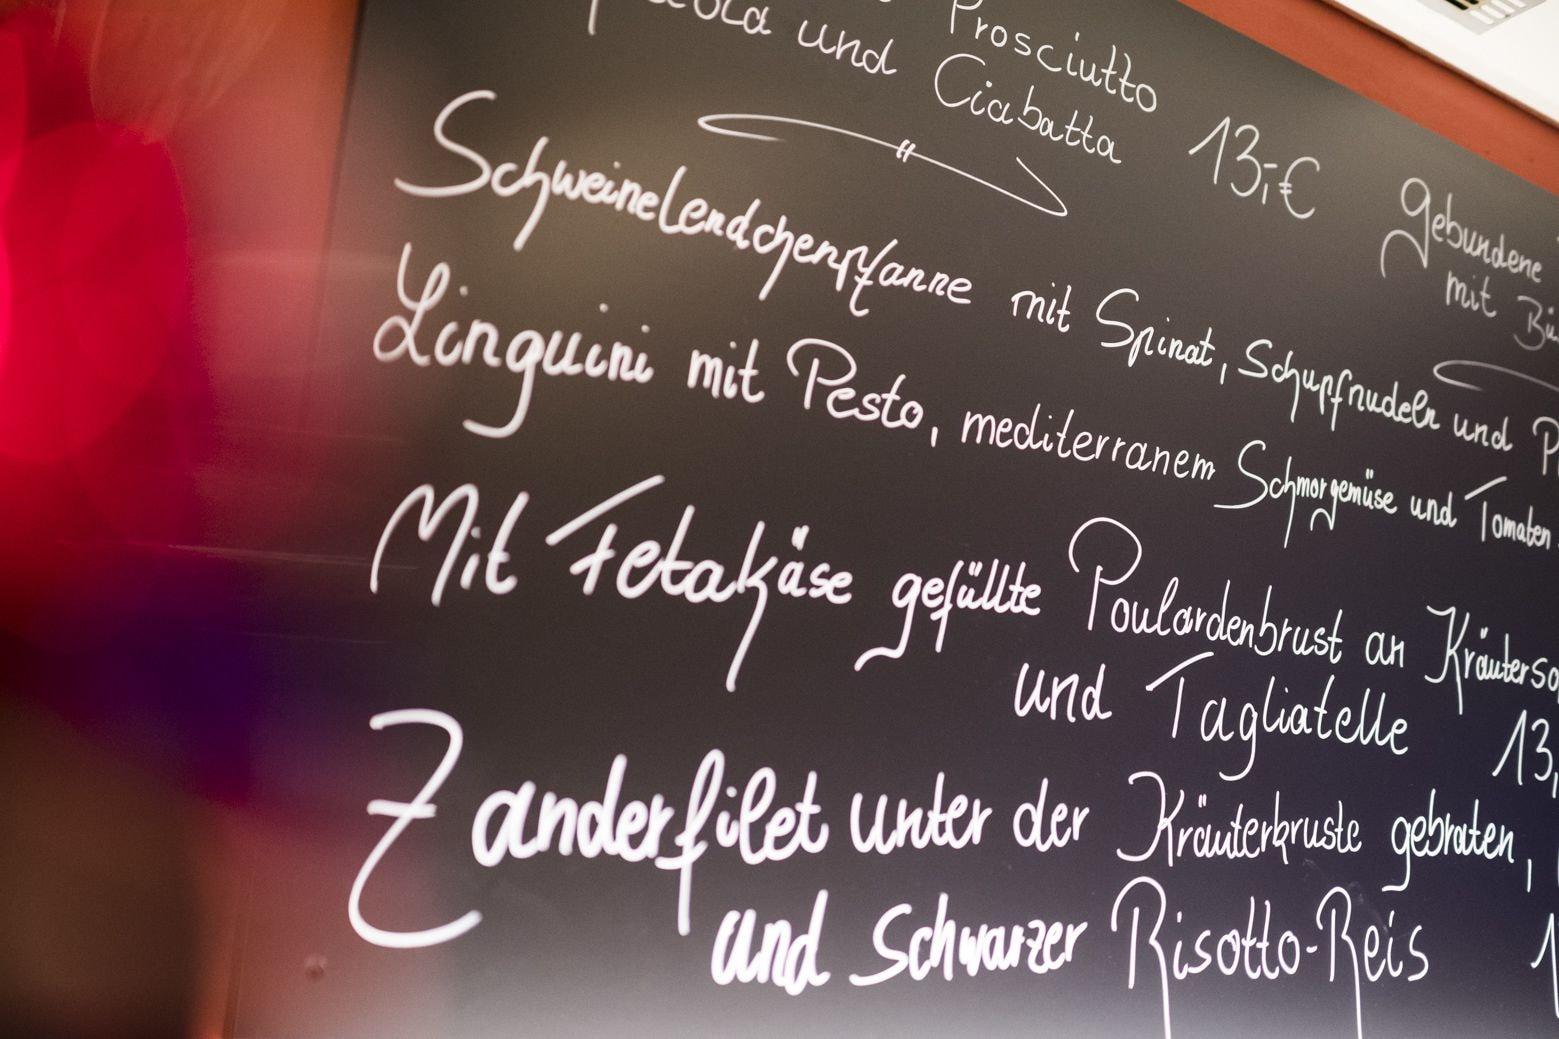 Prosciutto
und Ciabatta 13,-€
Gebundene
mit
Schweinelendchenpfanne mit Spinat, Schupfnudeln und
Linguini mit Pesto, mediterranem Schmorgemüse und Tomaten
Mit Fetakäse gefüllte Poulardenbrust an
und Tagliatelle 13,
Zanderfilet unter der Kräuterkruste gebraten,
und schwarzer Risotto-Reis